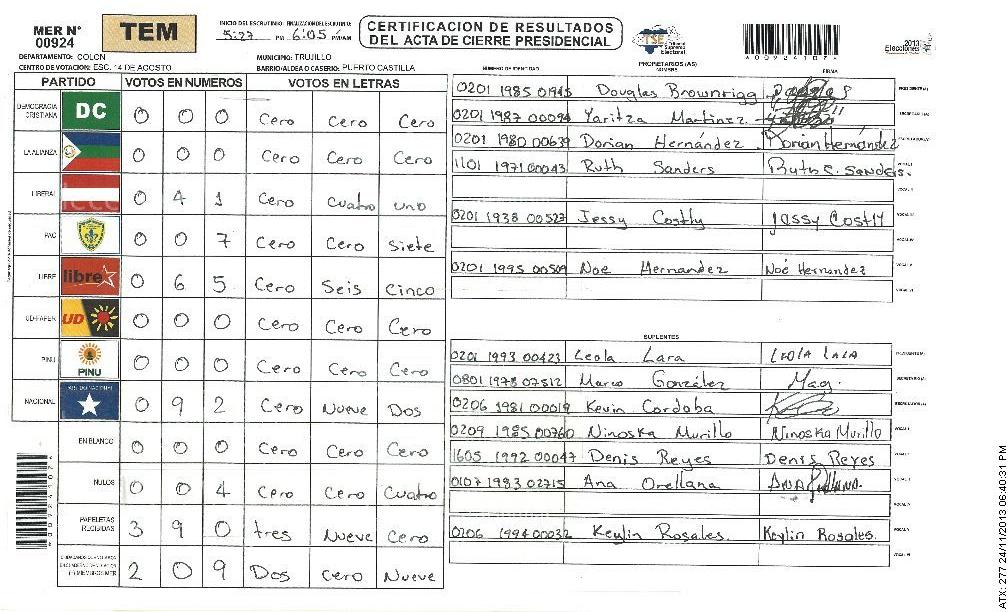 MER N° 00924
TEM
INICIO DEL ESCRUTINIO: 5:27 PM FINALIZACION DEL ESCRUTINIO: 6:05 PM/AM
CERTIFICACION DE RESULTADOS
DEL ACTA DE CIERRE PRESIDENCIAL
TSE Tribunal Supremo Electoral
2013 Elecciones
DEPARTAMENTO: COLON
MUNICIPIO: TRUJILLO
CENTRO DE VOTACION: ESC. 14 DE AGOSTO
BARRIO/ALDEA O CASERIO: PUERTO CASTILLA
PARTIDO VOTOS EN NUMEROS VOTOS EN LETRAS
DEMOCRACIA CRISTIANA DC 0 0 0 Cero Cero Cero
LA ALIANZA 0 0 0 Cero Cero Cero
LIBERAL 0 4 1 Cero Cuatro uno
PAC 0 0 7 Cero Cero Siete
LIBRE libre 0 6 5 Cero Seis Cinco
UD-FAPER UD 0 0 0 Cero Cero Cero
PINU PINU 0 0 0 Cero Cero Cero
NACIONAL PARTIDO NACIONAL 0 9 2 Cero Nueve Dos
EN BLANCO 0 0 0 Cero Cero Cero
NULOS 0 0 4 Cero Cero Cuatro
PAPELETAS RECIBIDAS 3 9 0 tres Nueve Cero
2 0 9 Dos Cero Nueve
PROPIETARIOS (AS)
NUMERO DE IDENTIDAD NOMBRE FIRMA
0201 1985 01945 Douglas Brownrigg
0201 1987 00094 Yaritza Martinez
0201 1980 00639 Dorian Hernández Dorian Hernández
1101 1971 00043 Ruth Sanders Ruth C. Sanders.
0201 1938 00527 Jessy Costly Jessy Costly
0201 1995 00509 Noe Hernandez Noé Hernandez
SUPLENTES
0201 1993 00423 Leola Lara Leola Lara
0801 1978 07512 Marco González Mag.
0206 1981 00019 Kevin Cordoba
0209 1985 00760 Ninoska Murillo Ninoska Murillo
1605 1992 00047 Denis Reyes Denis Reyes
0107 1983 02715 Ana Orellana
0206 1994 00032 Keylin Rosales. Keylin Rosales.
ATX: 277.24/11/2013 06:40:31 PM